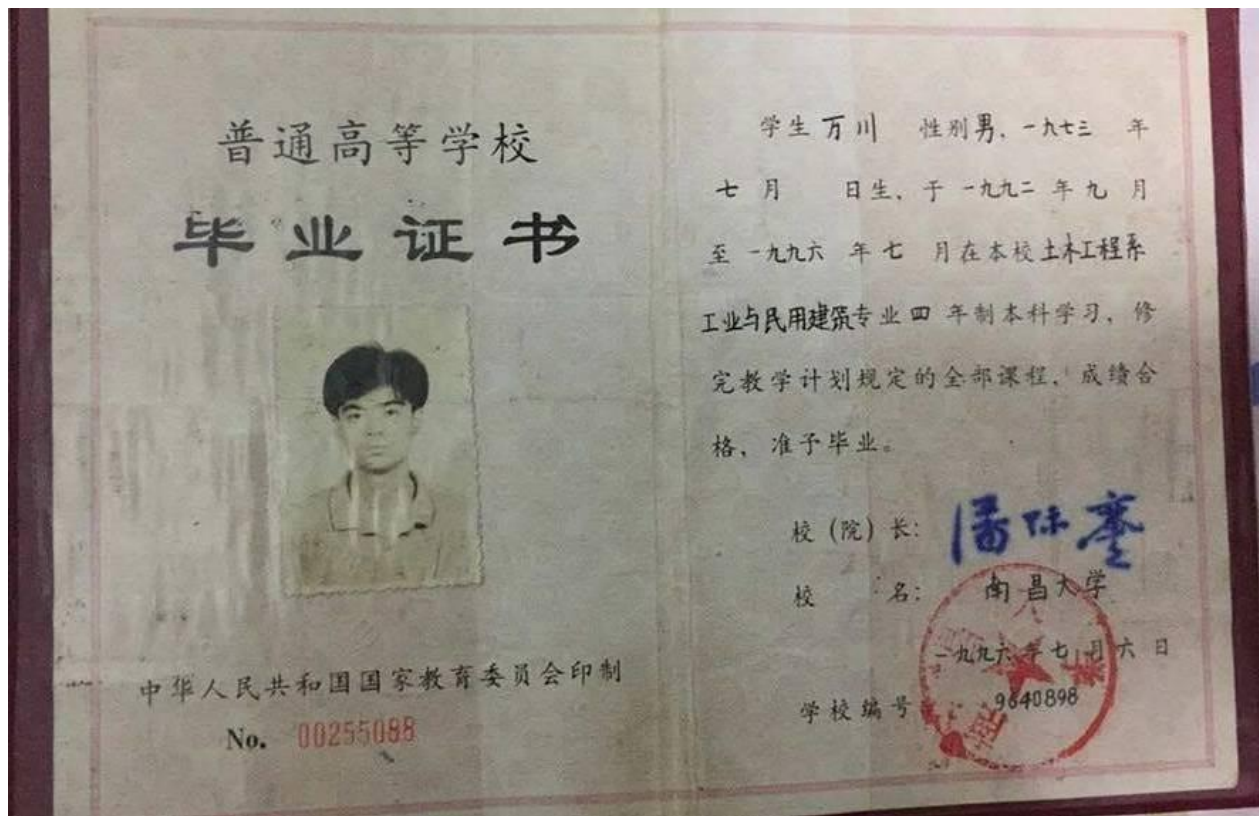 普通高等学校
毕业证书
中华人民共和国国家教育委员会印制
No. 00255088
学生 万川 性别 男, 一九七三 年
七 月 日生, 于 一九九二 年 九 月
至 一九九六 年 七 月在本校 土木工程系
工业与民用建筑专业 四 年制本科学习, 修
完教学计划规定的全部课程, 成绩合
格, 准予毕业。
校 (院) 长: 潘际銮
校 名: 南昌大学
一九九六年七月六日
学校编号: 9640898